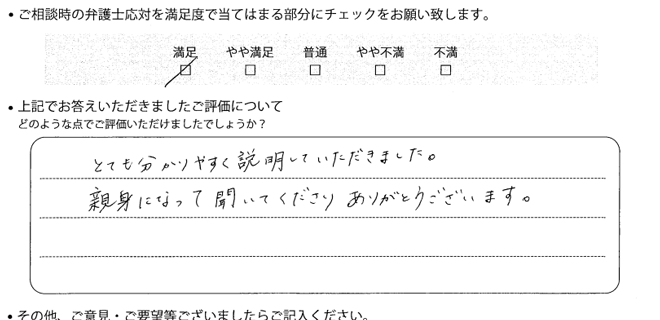 • ご相談時の弁護士応対を満足度で当てはまる部分にチェックをお願い致します。
満足 やや満足 普通 やや不満 不満
• 上記でお答えいただきましたご評価について
どのような点でご評価いただけましたでしょうか？
とても分かりやすく説明していただきました。
親身になって聞いてくださりありがとうございます。
• その他、ご意見・ご要望等ございましたらご記入ください。